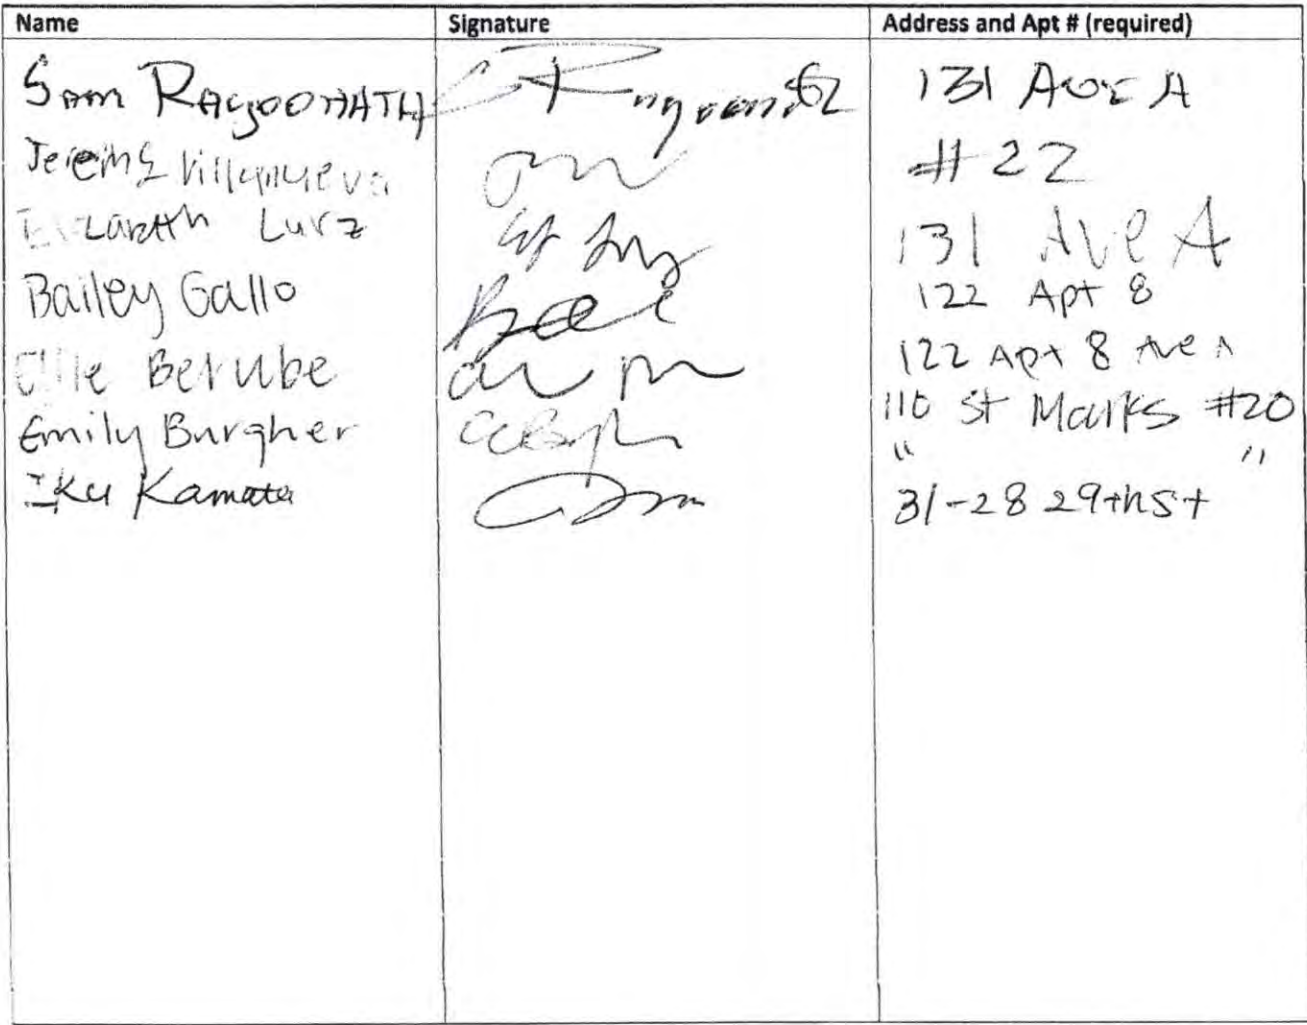 Name Signature Address and Apt # (required)
Sam Ragoonath 131 Ave A
Jeremy Villanueva #22
Elizabeth Lurz 131 Ave A
Bailey Gallo 122 Apt 8
Ollie Berube 122 Apt 8 Ave A
Emily Burgher 110 St Marks #20
Iku Kamata " "
31-28 29th St